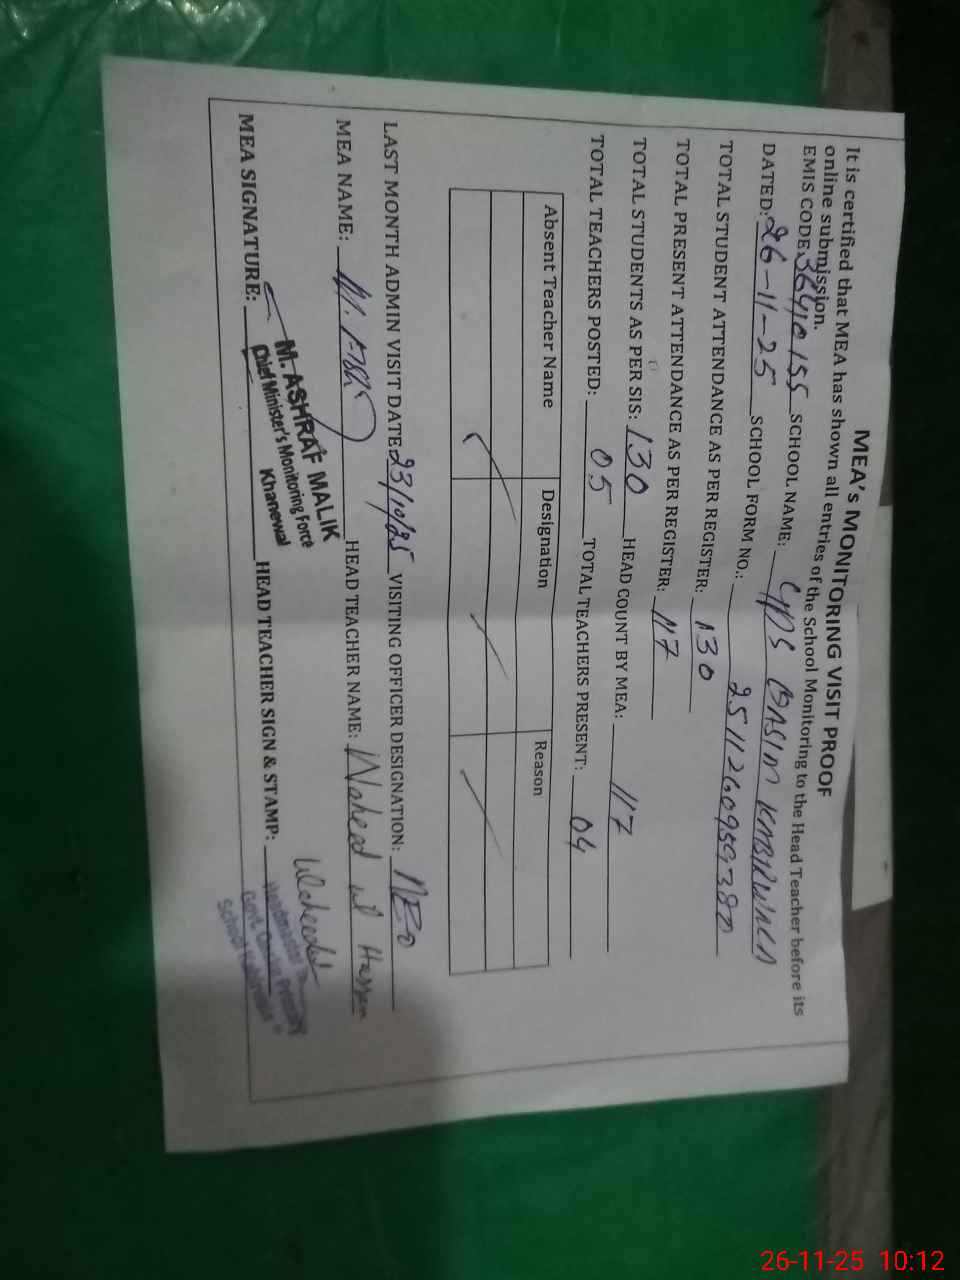 MEA's MONITORING VISIT PROOF
It is certified that MEA has shown all entries of the School Monitoring to the Head Teacher before its
online submission.
EMIS CODE: 36410155 SCHOOL NAME: GPS QASIM KABIRWALA
DATED: 26-11-25 SCHOOL FORM NO.: 2511260959380
TOTAL STUDENT ATTENDANCE AS PER REGISTER: 130
TOTAL PRESENT ATTENDANCE AS PER REGISTER: 117
TOTAL STUDENTS AS PER SIS: 130 HEAD COUNT BY MEA: 117
TOTAL TEACHERS POSTED: 05 TOTAL TEACHERS PRESENT: 04
Absent Teacher Name Designation Reason
LAST MONTH ADMIN VISIT DATE 23/10/25 VISITING OFFICER DESIGNATION:
MEA NAME: HEAD TEACHER NAME: Waheed ul Hassan
MEA SIGNATURE: HEAD TEACHER SIGN & STAMP:
M. ASHRAF MALIK
Chief Minister's Monitoring Force
Khanewal
Waheedul
Headmaster
Govt. Primary
School Kabirwala
26-11-25 10:12